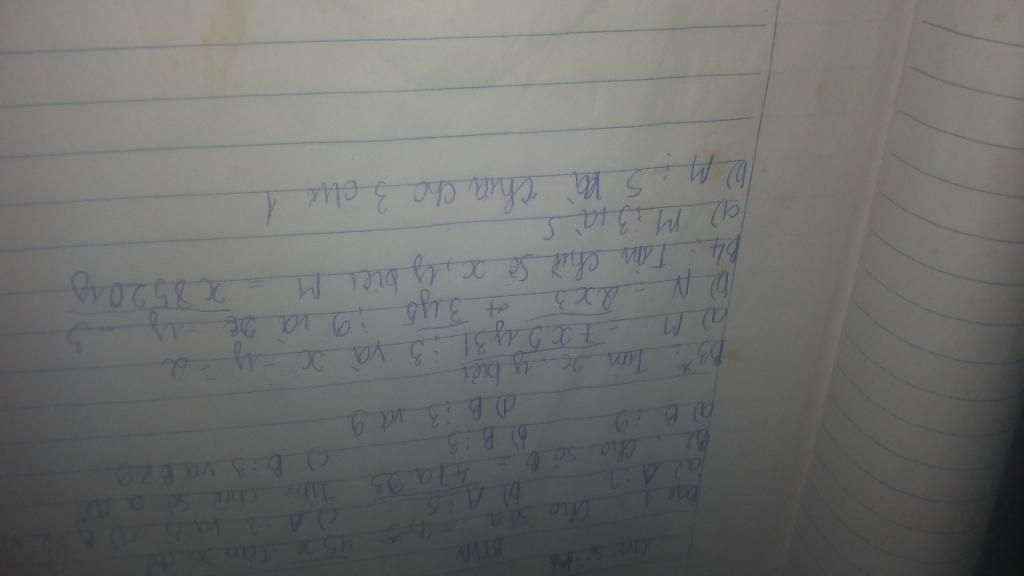 BTVN
Cho số A = 45x Tìm x để
a) A ⋮ 2 b) A ⋮ 5 c) A ⋮ 2 và 5 d) A
B2: Cho số B = 47a93 Tìm chữ số a để
a) B ⋮ 9 b) B ⋮ 3 c) B ⋮ 3 và B ⋮̸ 9
d) B ⋮ 3 và 9
B3*: Tìm x, y biết
a) M = 7x5y31 ⋮ 3 và x - y = 2
b) N = 2x3 + 3y5 ⋮ 9 và x - y = 3
B4: Tìm chữ số x, y biết M = x8520y
a) M ⋮ 3 và 5
b) M ⋮ 5 và chia cho 3 dư 1